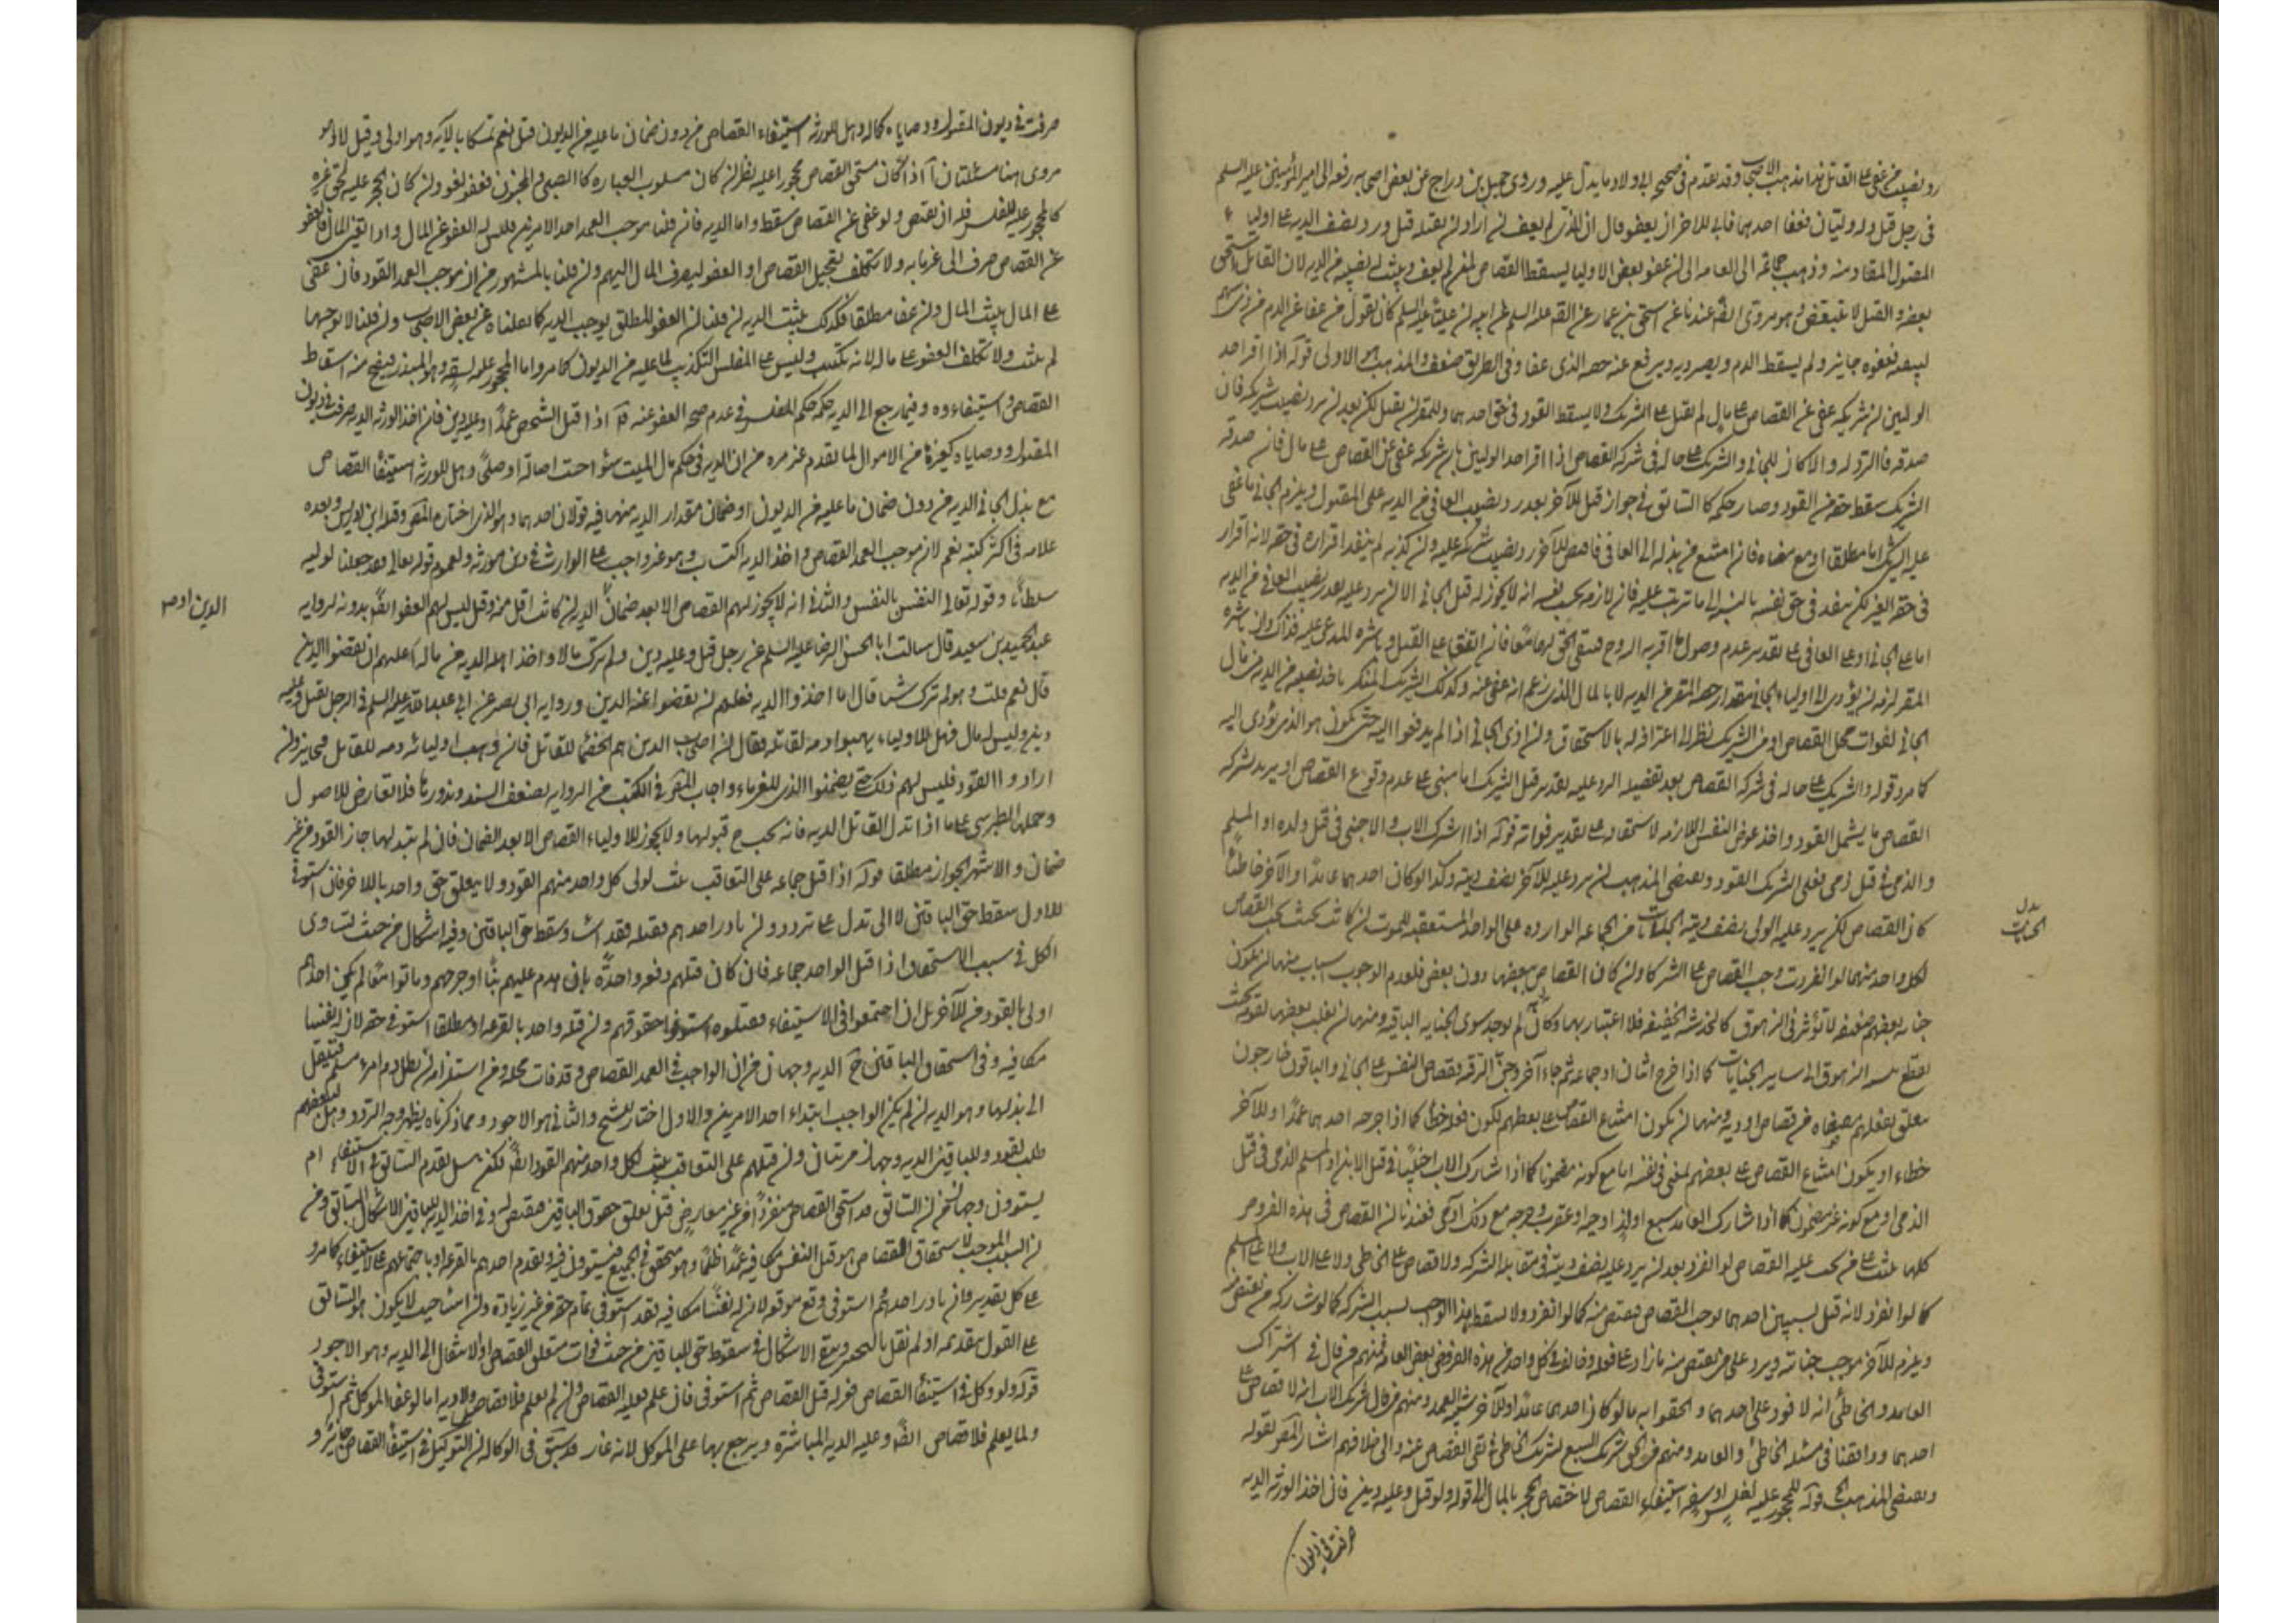 رد نصيب من عفى على القاتل هذا مذهب الاصحاب وقد تقدم فى صحيحة ابى ولاد ما يدل عليه وروى جميل بن دراج عن بعض اصحابه رفعه الى امير المؤمنين عليه السلم
فى رجل قتل وله وليان فعفا احدهما فابى الاخر ان يعفو قال ان الذى لم يعف ان اراد ان يقتله قتل ورد نصف الدية على اولياء
المقتول المقاد منه وذهب جماعة الى العامه الى ان عفو بعض الاوليا يسقط القصاص لمن لم يعف ويثبت له نصيبه من الدية لان القاتل استحق
بعضه والقتل لا يتبعض وهو مروى ايضا عندنا عن اسحق بن عمار عن الصم عليه السلم عن ابيه ان عليا عليه السلم كان يقول من عفا عن الدم من ذى سهم
فعفوه جايز ولم يسقط الدم ويصير دية ويرفع عنه حصة الذى عفا وفى الطريق ضعف والمذهب هو الاولى قوله اذا اقر احد
الوليين ان شريكه عفى عن القصاص على مال لم يقبل على الشريك ولا يسقط القود فى حق احدهما وللمقر ان يقتل لكن بعد ان يرد نصيب شريكه فان
صدقه فالرد له والا كان للجانى والشريك على حاله فى شركة القصاص اذا اقر احد الوليين بان شريكه عفى عن القصاص على مال فان صدقه
الشريك سقط حقه من القود وصار حكمه كالسابق فى جواز قتل الآخر بعد رد نصيب العافى من الدية على المقتول ويلزم الجانى ما عفى
عليه الشريك اما مطلقا او مع رضاه فان امتنع من بذله الى العافى فاقتص الآخر رد نصيب شريكه عليه وان كذبه لم ينفذ اقراره فى حقه لانه اقرار
فى حق الغير لكن ينفذ فى حق نفسه بالنسبة الى ما ترتب عليه فان لازمه بحسب نفسه انه لا يجوز له قتل الجانى الا ان يرد عليه بعد نصيب العافى من الدية
اما على الجانى او على العافى على تقدير عدم وصول ما اقر به الزوج فيبقى الحق لهما معا فان اتفقا على القتل وباشره المدعى عليه فذاك وان باشره
المقر لزمه ان يؤدى الى اولياء الجانى مقدار حصة المقر من الدية لا بالمال الذى زعم انه عفى عنه وكذلك الشريك المنكر ياخذ نصيبه من الدية من مال
الجانى لفوات محل القصاص او من الشريك نظرا الى اعترافه له بالاستحقاق وان اذى الجانى اذا لم يدفعوا اليه حتى يكون هو الذى يؤدى اليه
كما مر وقوله والشريك على حاله فى شركة القصاص بعد تفصيله الرد عليه بقدير قتل الشريك اما مبنى على عدم وقوع القصاص او يريد بشركة
القصاص ما يشمل القود واخذ عوض النفس اللازمة لاستحقاقه على تقدير فواته قوله اذا اشترك الاب والاجنبى فى قتل ولده او المسلم
والذمى فى قتل ذمى فعلى الشريك القود ويقتضى المذهب ان يرد عليه الآخر نصف ديته وكذا لو كان احدهما عامدا والآخر خاطئا
كان القصاص لكن يرد عليه الولى نصف ديته الجنايات من الجماعة الواردة على الواحد المستعقبة للموت ان كانت بحيث يجب القصاص
لكل واحد منهما لو انفردت وجب القصاص على الشركا وان كان القصاص ببعضها دون بعض فلعدم الوجوب اسباب منها ان يكون
جناية بعضهم ضعيفة لا تؤثر فى الزهوق كالخدشة الخفيفة فلا اعتبار بها وكانه لم يوجد سوى الجناية الباقية ومنها ان يغلب بعضها بقوته بحيث
يقطع نسبة الزهوق الى ساير الجنايات كما اذا جرح اثنان او جماعة ثم جاء آخر وحز الرقبة فقصاص النفس على الجانى والباقون خارجون
معلق بفعلهم مقتضاه من قصاص او دية ومنها ان يكون امتناع القصاص على بعضهم لكون فعله خطأ كما اذا جرحه احدهما عمدا والآخر
خطاء او يكون امتناع القصاص على بعضهم لمعنى فى نفسه اما مع كونه مضمونا كما اذا شارك الاب اجنبيا فى قتل الابن او المسلم الذمى فى قتل
الذمى او مع كونه غير مضمون كما اذا شارك العامد سبع او لدغه حية او عقرب وجرحه مع ذلك آدمى فعندنا ان القصاص فى هذه الفروض
كلها يثبت على من يجب عليه القصاص لو انفرد بعد ان يرد عليه نصف ديته فى مقابلة الشركة ولا قصاص على الخاطى ولا على الاب ولا على المسلم
كما لو انفرد لانه قتل بسببين احدهما يوجب القصاص فيقتص منه كما لو انفرد ولا يسقط هذا الواجب بسبب الشركة كما لو شاركه من يقتص منه
ويلزم الآخر موجب جنايته ويرد على من يقتص منه ما زاد على فعله وخالف فى كل واحد من هذه الفروض بعض العامة فمنهم من قال فى اشتراك
العامد والخاطئ انه لا قود على احدهما والحقوا به ما لو كان احدهما عامدا والآخر شبيه العمد ومنهم من قال فى شريك الاب انه لا قصاص على
احدهما ووافقنا فى مسئلة الخاطئ والعامد ومنهم من الحق شريك السبع بشريك الخاطئ فى نفى القصاص عنه والى خلافهم اشار المص بقوله
ويقتضى المذهب الخ قوله للمحجور عليه لفلس او سفه استيفاء القصاص لاختصاص الحجر بالمال الى قوله ولو قتل وعليه دين فان اخذ الورثة الدية
صرفت فى ديون
بدل
الجنايات
صرفت فى ديون المقتول ووصاياه كماله وهل للورثة استيفاء القصاص من دون ضمان ما عليه من الديون قيل نعم تمسكا بالآية وهو اولى وقيل لا وهو
مروى هنا مسئلتان آ اذا كان مستحق القصاص محجورا عليه نظر ان كان مسلوب العبارة كالصبى والمجنون فعفوه لغو وان كان الحجر عليه لحق غيره
كالمحجور عليه للفلس فله ان يقتص ولو عفى عن القصاص سقط واما الدية فان قلنا موجب العمد احد الامرين فليس له العفو عن المال واذا تعين المال بالعفو
عن القصاص صرف الى غرمائه ولا يكلف تعجيل القصاص او العفو ليصرف المال اليهم وان قلنا بالمشهور من ان موجب العمد القود فان عفى
على المال يثبت المال وان عفا مطلقا فكذلك يثبت الدية ان قلنا ان العفو المطلق يوجب الدية كما نقلناه عن بعض الاصحاب وان قلنا لا يوجبها
لم يثبت ولا يكلف العفو على مال لانه تكسب وليس على المفلس التكسب لما عليه من الديون كما مر واما المحجور عليه لسفه وهو المبذر فيصح منه اسقاط
القصاص واستيفاءوه وفيما رجع الى الدية حكمه حكم المفلس فى عدم صحة العفو عنه ب اذا قتل الشخص عمدا وعليه دين فان اخذ الورثة الدية صرفت فى ديون
المقتول ووصاياه كغيرها من الاموال لما تقدم غير مرة من ان الدية فى حكم مال الميت سواء وجبت اصالة او صلحا وهل للورثة استيفاء القصاص
مع بذل الجانى الدية من دون ضمان ما عليه من الديون او ضمان مقدار الدية منهما فيه قولان احدهما وهو الذى اختاره المص وقبله ابن ادريس وبعده
علامه فى اكثر كتبه نعم لان موجب العمد القصاص واخذ الدية اكتساب وهو غير واجب على الوارث فى دين مورثه ولعموم قوله تعالى فقد جعلنا لوليه
سلطانا وقوله تعالى النفس بالنفس والثانى انه لا يجوز لهم القصاص الا بعد ضمان الدية ان كانت اقل منه وقيل ليس لهم العفو ايضا بدونه لرواية
عبد الحميد بن سعيد قال سالت ابا الحسن الرضا عليه السلم عن رجل قتل وعليه دين ولم يترك مالا واخذ اهله الدية من ماله اعليهم ان يقضوا الدين
قال نعم قلت وهو لم يترك شيئا قال اما اخذوا الدية فعليهم ان يقضوا عنه الدين ورواية ابى بصير عن ابى عبد الله عليه السلم فى الرجل يقتل وعليه
دين وليس له مال فهل للاولياء يهبوا دمه لقاتله فقال ان اصحاب الدين هم الخصماء للقاتل فان وهب اولياؤه دمه للقاتل فجايز وان
ارادوا القود فليس لهم ذلك حتى يضمنوا الدين للغرماء واجاب المص فى النكت عن الرواية بضعف السند وندورها فلا تعارض الاصول
وحملها الطبرسى على ما اذا بذل القاتل الدية فانه يجب ح قبولها ولا يجوز للاولياء القصاص الا بعد الضمان فان لم يبذلها جاز القود من غير
ضمان والاشهر الجواز مطلقا قوله اذا قتل جماعة على التعاقب ثبت لولى كل واحد منهم القود ولا يتعلق حق واحد بالاخر فان استوفى
الاول سقط حق الباقين لا الى بدل على تردد ولو بادر احدهم فقتله فقد اساء وسقط حق الباقين وفيه اشكال من حيث تساوى
الكل فى سبب الاستحقاق اذا قتل الواحد جماعة فان كان قتلهم دفعة واحدة بان هدم عليهم بيتا او جرحهم وماتوا معا لم يكن احدهم
اولى بالقود من الآخر بل ان اجتمعوا فى الاستيفاء فقتلوه استوفوا حقوقهم وان قتله واحد بالقرعة او مطلقا استوفى حقه لان له نفسا
مكافية وفى استحقاق الباقين ح الدية وجهان من ان الواجب فى العمد القصاص وقد فات محله ومن استلزامه ان يطل دم امرء مسلم فينتقل
الى بدلها وهو الدية ان لم يكن الواجب ابتداء احد الامرين والاول اختار الشيخ والثانى هو الاجود ومما ذكرناه يظهر وجه التردد وهل لبعضهم
طلب القود وللباقين الدية وجهان مرتبان وان قتلهم على التعاقب يثبت لكل واحد منهم القود ايضا لكن هل يقدم السابق فى الاستيفاء ام
يستوون وجهان من ان السابق قد استحق القصاص منفردا من غير معارض قبل تعلق حقوق الباقين فيقتص له وفى اخذ الدية للباقين الاشكال السابق ومن
ان السبب الموجب لاستحقاق القصاص هو قتل النفس مكافية عمدا ظلما وهو متحقق فى الجميع فيستوون فيه ويقدم احدهم بالقرعة او باجتماعهم على الاستيفاء كما مر و
على كل تقدير فان بادر احدهم استوفى وقع موقعه لان له نفسا مكافية فقد استوفى تمام حقه من غير زيادة وان اساء حيث لا يكون هو السابق
على القول بتقديمه او لم نقل بالتخيير ويبقى الاشكال فى سقوط حق الباقين من حيث فوات متعلق القصاص او الانتقال الى الدية وهو الاجود
قوله ولو وكل فى استيفاء القصاص فعزله قبل القصاص ثم استوفى فان علم فعليه القصاص وان لم يعلم فلا قصاص ولا دية اما لو عفا الموكل ثم استوفى
ولما يعلم فلا قصاص ايضا وعليه الدية للمباشرة ويرجع بها على الموكل لانه غار قد سبق فى الوكالة ان التوكيل فى استيفاء القصاص جائز و
الدين او ص